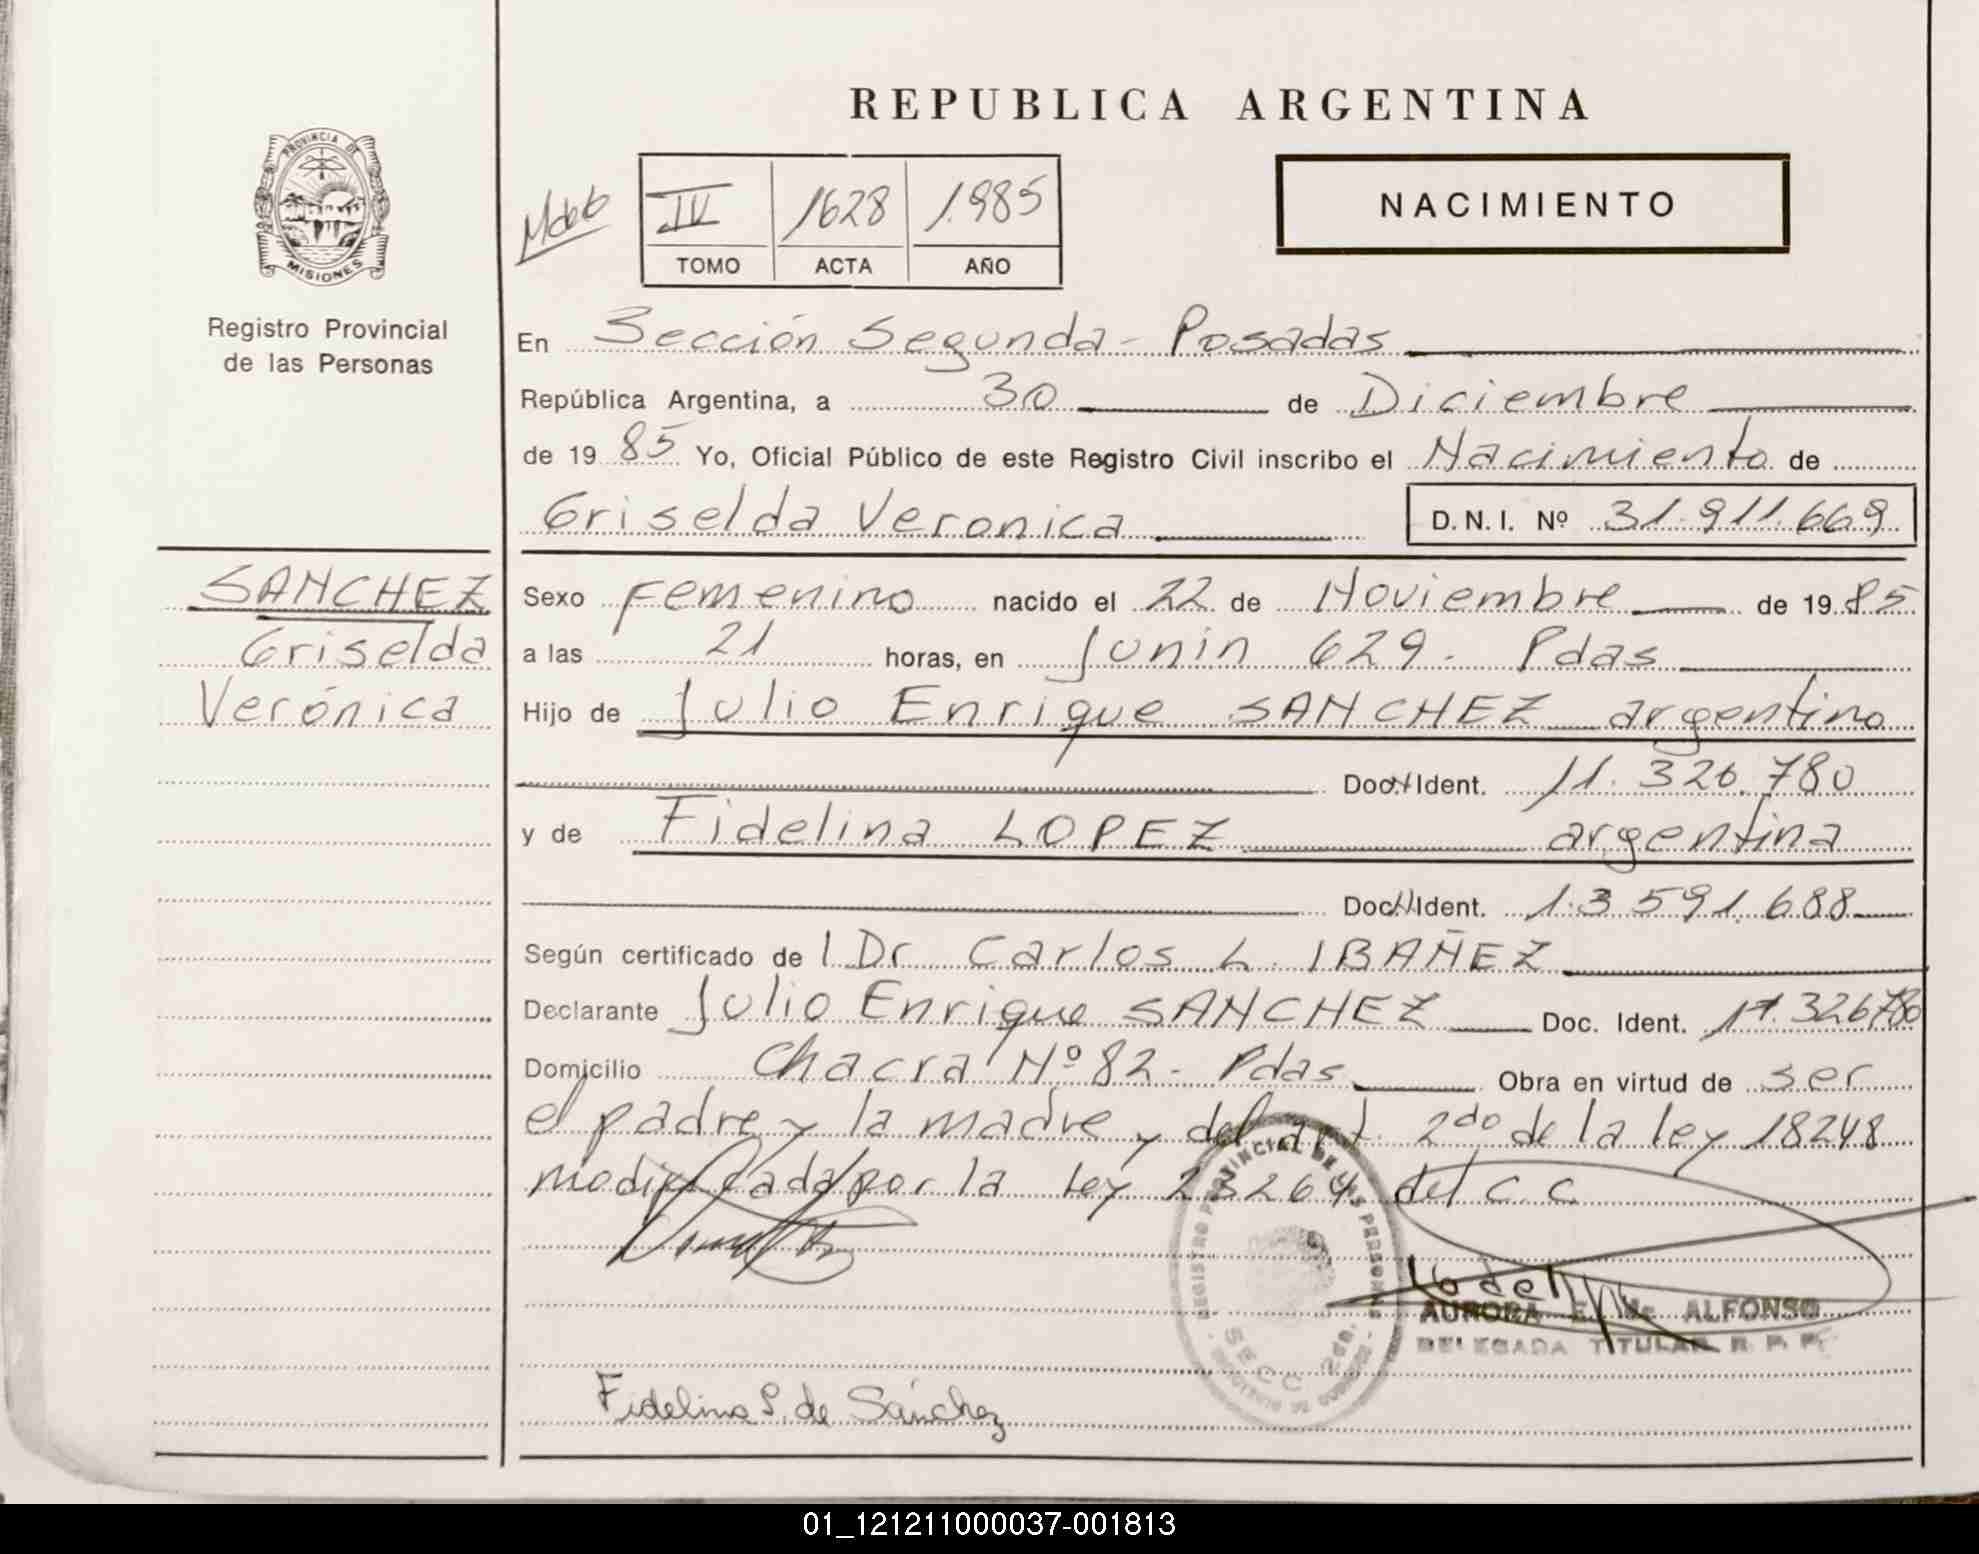 REPUBLICA ARGENTINA
PROVINCIA DE
MISIONES
Registro Provincial
de las Personas
IV 1628 1985
TOMO ACTA AÑO
NACIMIENTO
En Sección Segunda - Posadas
República Argentina, a 30 de Diciembre
de 19 85 Yo, Oficial Público de este Registro Civil inscribo el Nacimiento de
Griselda Veronica D.N.I. Nº 31.911.669
SANCHEZ
Griselda
Verónica
Sexo Femenino nacido el 22 de Noviembre de 19 85
a las 21 horas, en Junin 629. Pdas
Hijo de Julio Enrique SANCHEZ argentino
Doc. Ident. 11.326.780
y de Fidelina LOPEZ argentina
Doc. Ident. 13.591.688
Según certificado de l Dr Carlos L. IBAÑEZ
Declarante Julio Enrique SANCHEZ Doc. Ident. 11.326.780
Domicilio Chacra Nº 82 - Pdas Obra en virtud de ser
el padre y la madre y del art. 2do de la ley 18248
modificada por la Ley 23264 del C.C
REGISTRO PROVINCIAL DE LAS PERSONAS
SECC. 2da.
AURORA E. de ALFONSO
DELEGADA TITULAR R. P. P.
Fidelina L. de Sánchez
01_121211000037-001813